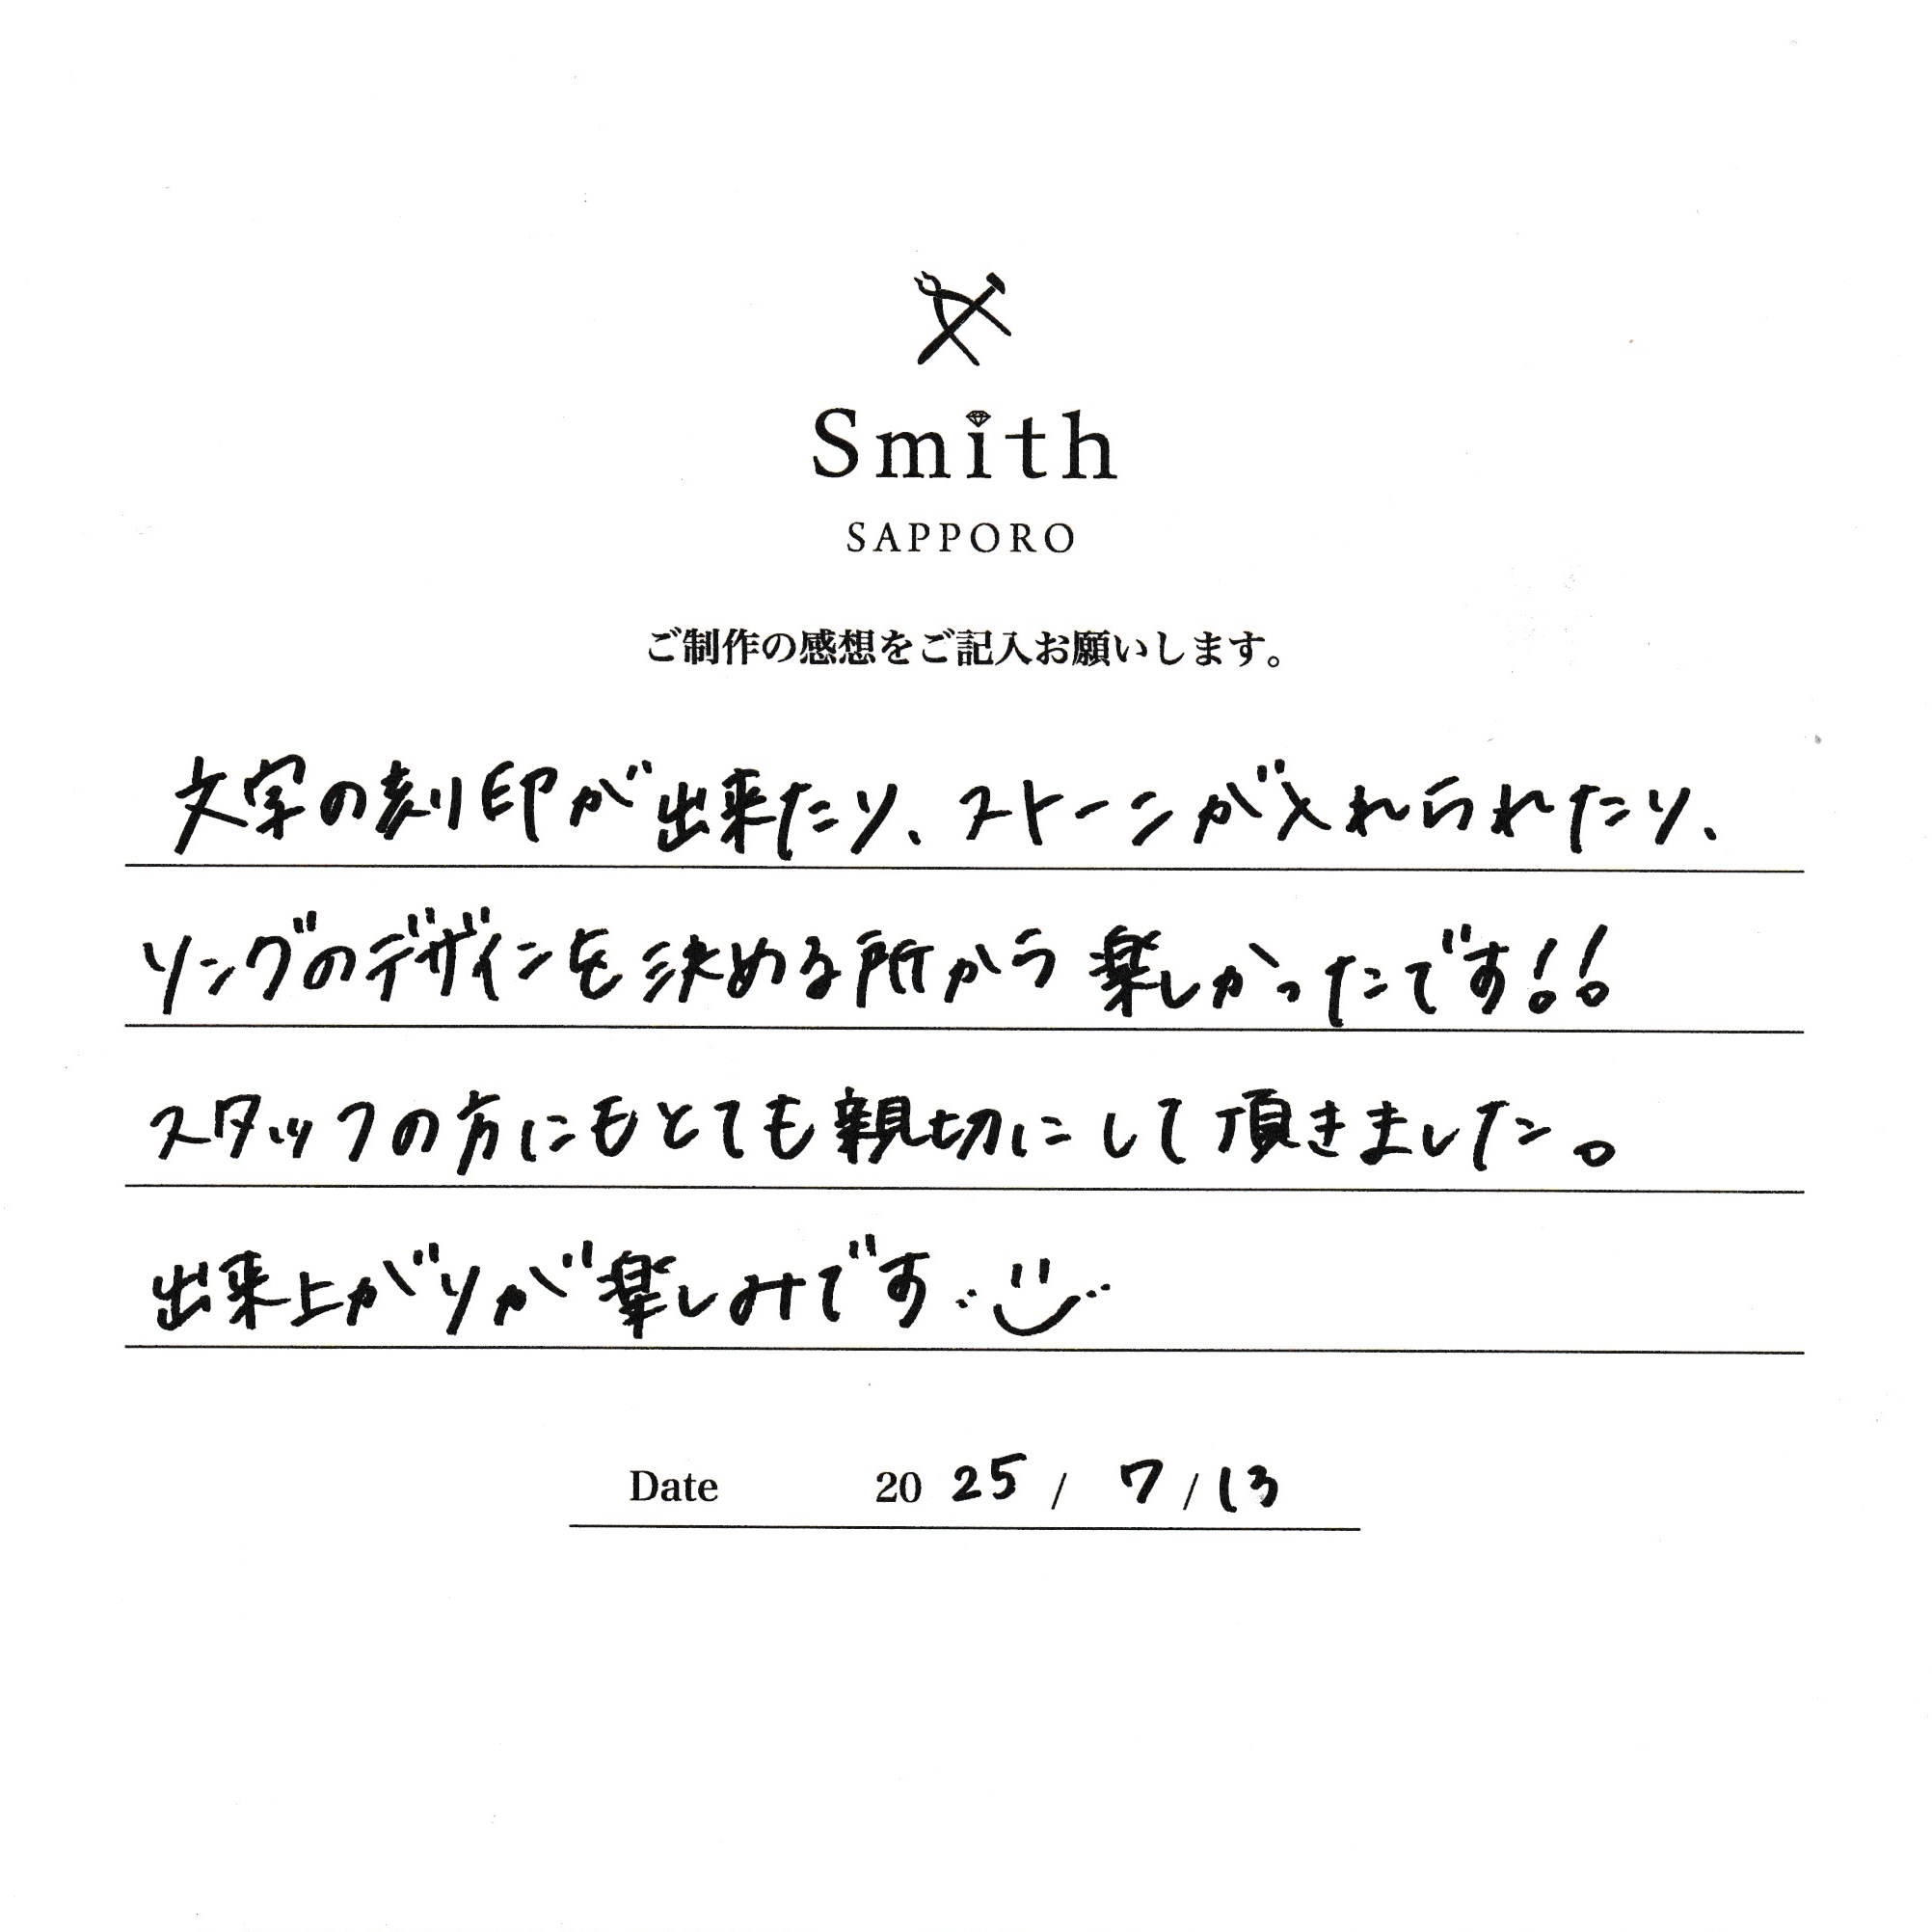 Smith
SAPPORO
ご制作の感想をご記入お願いします。
文字の刻印が出来たり、ストーンが入れられたり、
リングのデザインを決める所から楽しかったです!!
スタッフの方にもとても親切にして頂きました。
出来上がりが楽しみです
Date 2025 / 7 / 13